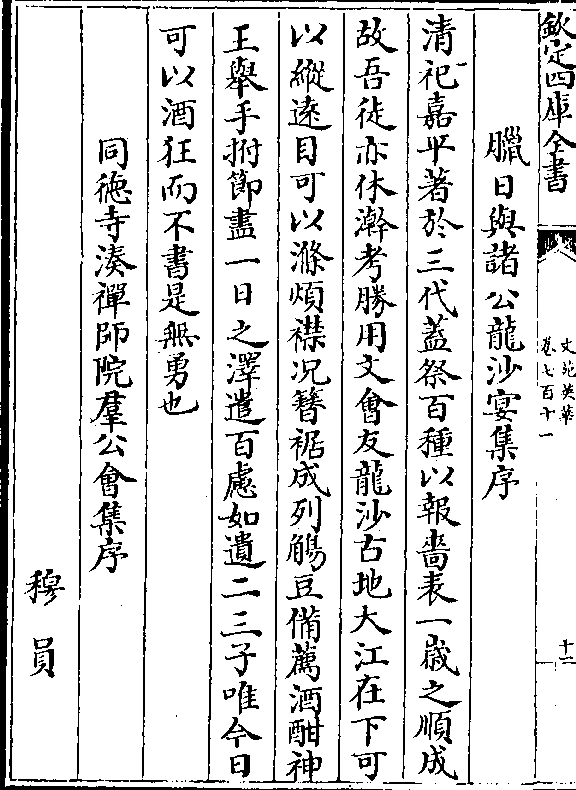 欽定四庫全書
文苑英華
卷七百十一
十二
臘日與諸公龍沙宴集序
清祀嘉平著於三代蓋祭百種以報嗇表一歲之順成
故吾徒亦休澣考勝用文會友龍沙古地大江在下可
以縱遠目可以滌煩襟况簪裾成列觴豆備薦酒酣神
王舉手拊節盡一日之澤遣百慮如遺二三子唯今日
可以酒狂而不書是無勇也
同德寺湊禪師院羣公會集序
穆員